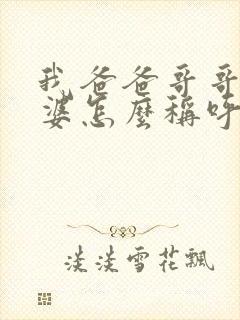 我爸爸哥哥
婆怎麼稱呼
淡淡雪花飄